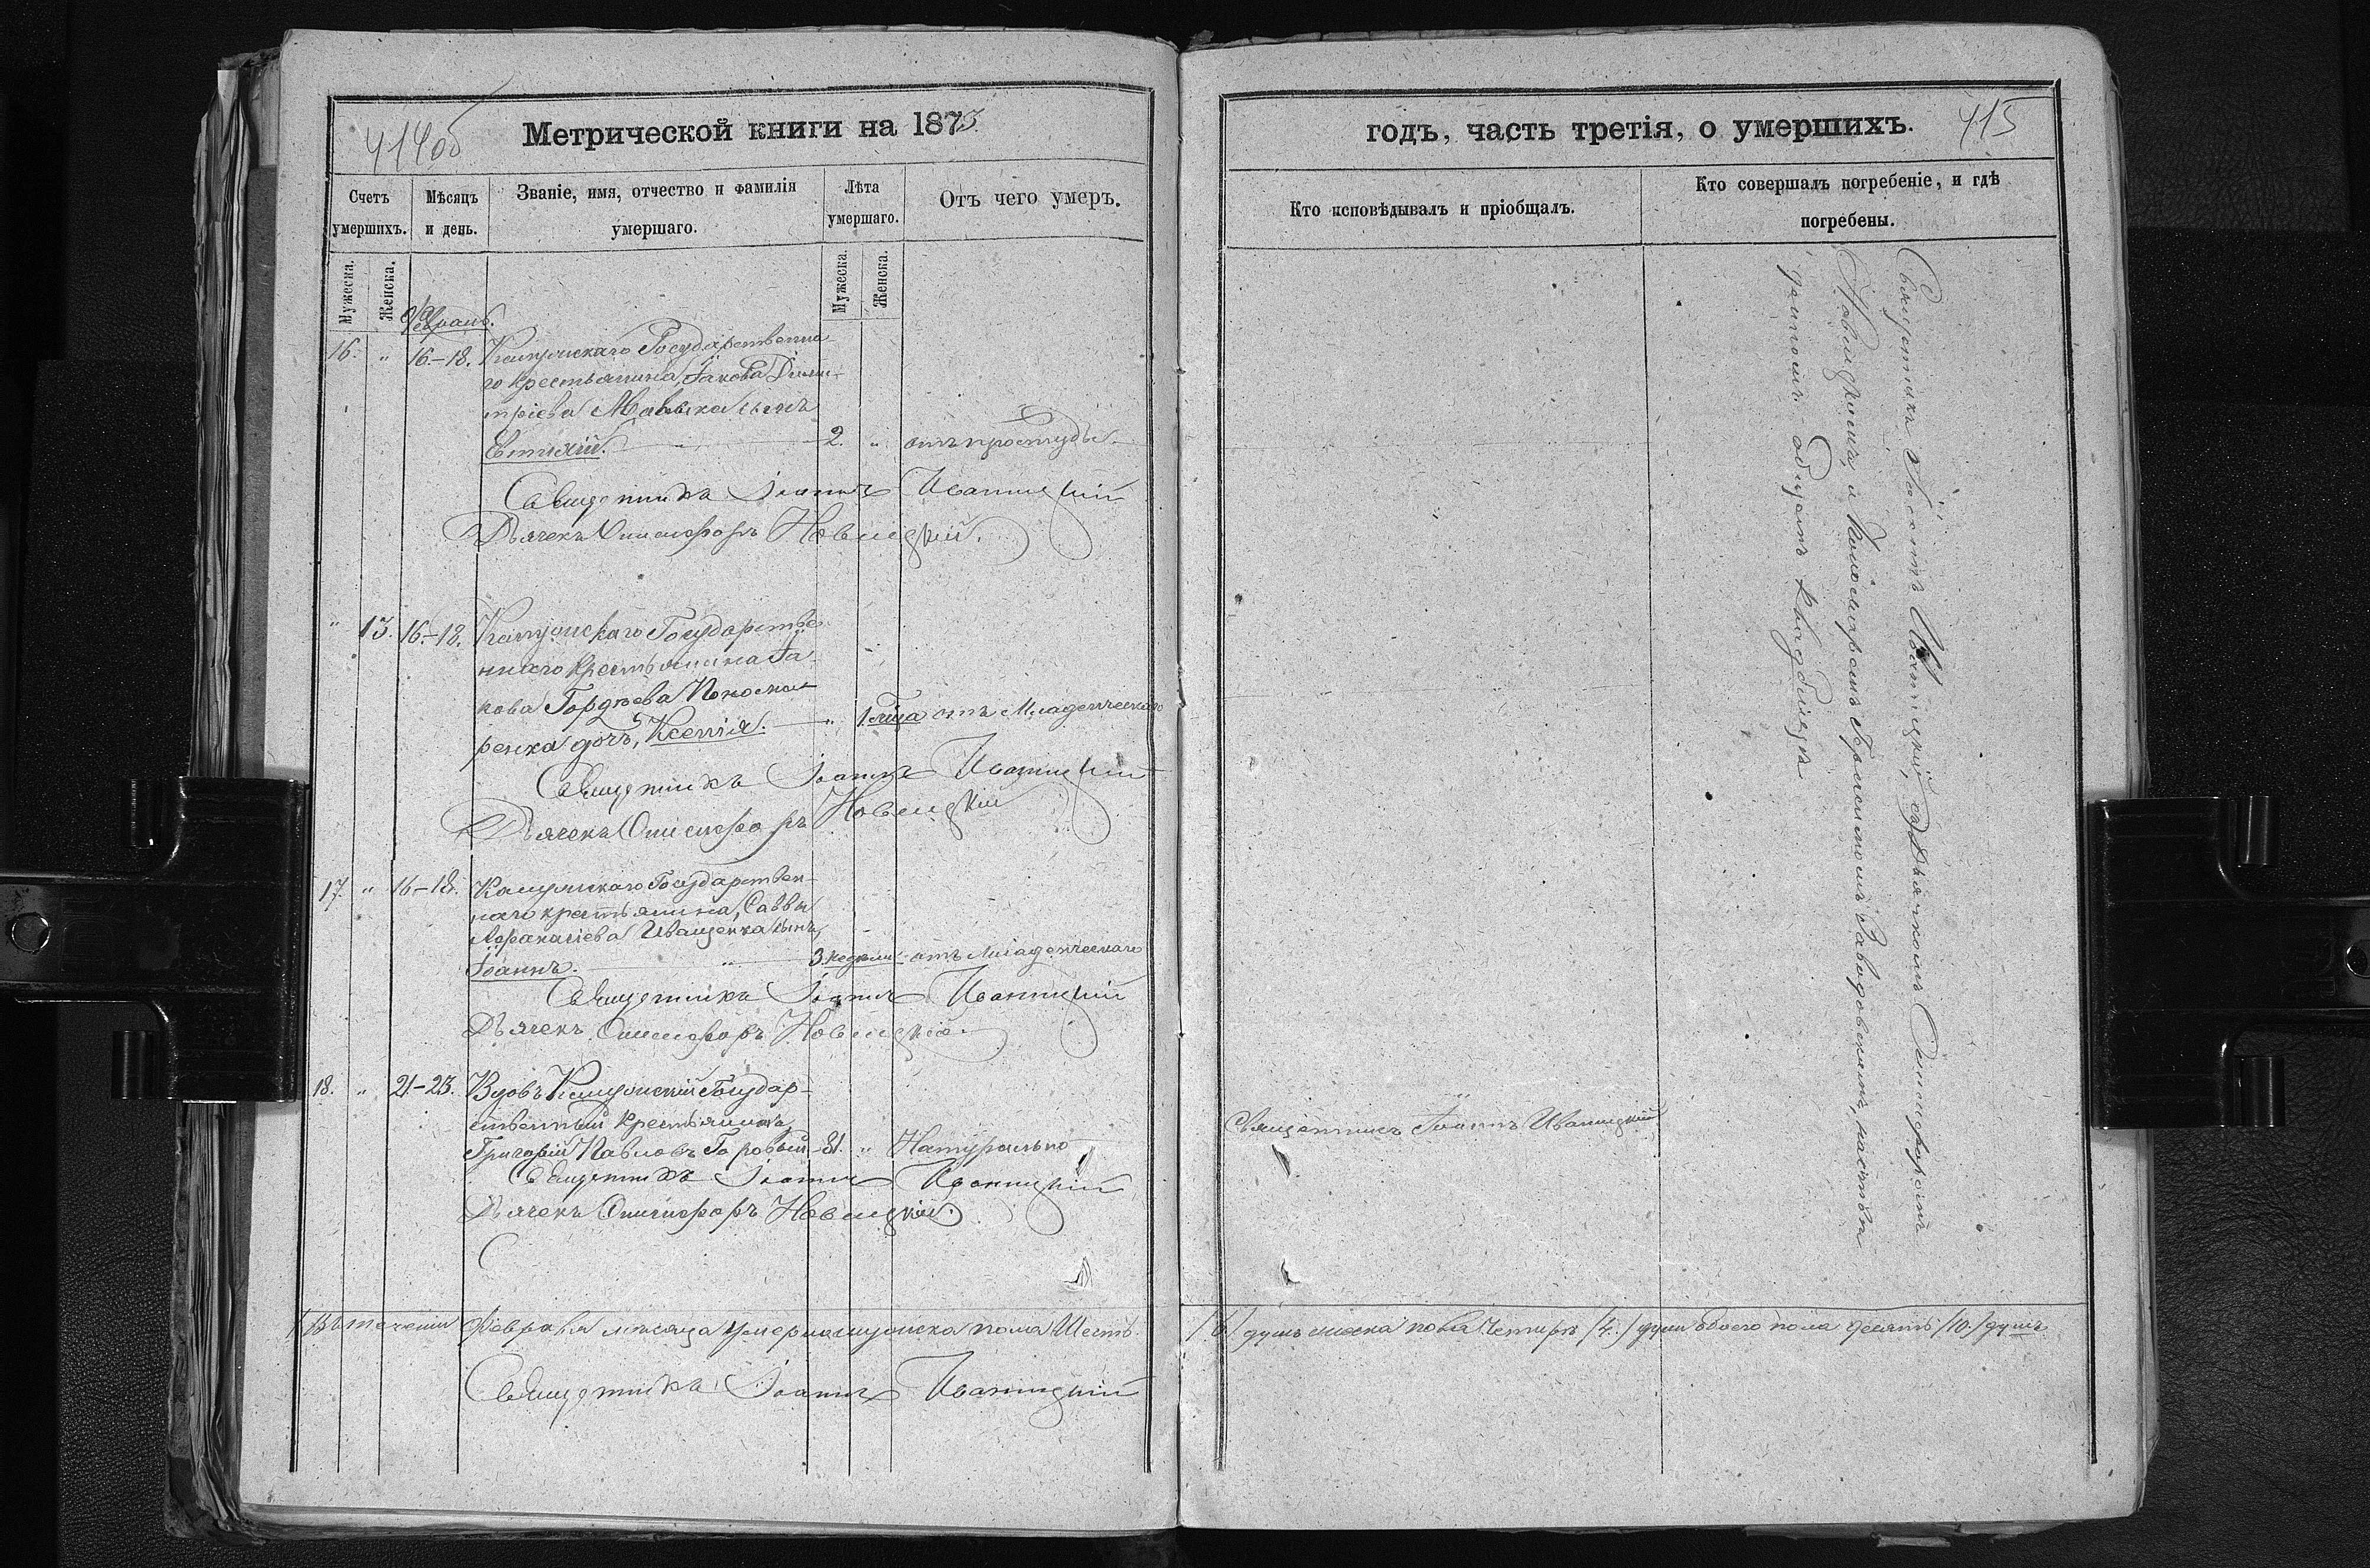 414об
Метрической книги на 1873
Счетъ умершихъ.
Мѣсяцъ и день.
Званіе, имя, отчество и фамилія умершаго.
Лѣта умершаго.
Отъ чего умеръ.
Мужеска.
Женска.
Мужеска.
Женска.
Февраль.
16. " 16.–18. Государственна
го крестьянина, Іакова Дими-
тріева сынъ
Евтихій. " 2. " отъ простуды.
Священникъ Іоаннъ Иваницкій
Дьячекъ Онисифоръ Новицкій.
" 13. 16.–18. Государстве-
ннаго крестьянина Іа-
кова Гордѣева
ренка дочь, Ксенія. " 1. года отъ Младенческаго
Священникъ Іоаннъ Иваницкій
Дьячекъ Онисифоръ Новицкій
17. " 16–18. Государствен-
наго крестьянина, Саввы
Аѳанасіева Иващенка сынъ,
Іоаннъ. " 3. недѣли отъ Младенческаго
Священникъ Іоаннъ Иваницкій
Дьячекъ Онисифоръ Новицкій
18. " 21–23. Вдовъ Государ-
ственный крестьянинъ
Григорій Павловъ Горовый 81. " Натурально
Священникъ Іоаннъ Иваницкій
Дьячекъ Онисифоръ Новицкій.
Въ теченіи Февраля мѣсяца умерло мужеска пола Шесть
Священникъ Іоаннъ Иваницкій
годъ, часть третія, о умершихъ.
415
Кто исповѣдывалъ и пріобщалъ.
Кто совершалъ погребеніе, и гдѣ погребены.
Священникъ Іоаннъ Иваницкій, съ Дьячкомъ Онисифоромъ
Новицкимъ, и Пономаремъ Заводовскимъ, на
общемъ кладбищѣ
Священникъ Іоаннъ Иваницкій
/6/ душъ женска пола Четыре /4./ души обоего пола десять /10./ душъ